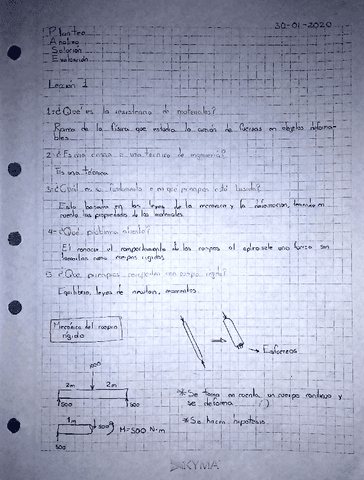 30-01-2020
Planteo
Análisis
Solución
Evaluación
Lección 1
1-¿Qué es la resistencia de materiales?
Rama de la física que estudia la acción de fuerzas en objetos deforma-
bles.
2-¿Es una ciencia o una técnica de ingeniería?
Es una
3-¿Cuál es su fundamento o en que principios está basada?
Esta basada en las leyes de la mecánica y la deformación, tomando en
cuenta las propiedades de los materiales.
4-¿Qué problema afronta?
El conocer el comportamiento de los cuerpos al aplicarsele una fuerza sin
tomarlos como cuerpos rígidos.
5-¿Que principios comparten con cuerpo rígido?
Equilibrio, leyes de newton, momentos.
Mecánica del cuerpo
rígido
Esfuerzos
1000
2m 2m
500 500
* Se toma en cuenta un cuerpo continuo y
se deforma.
1m
500 M=500 N-m
500
* Se hacen hipótesis.
SKYMA